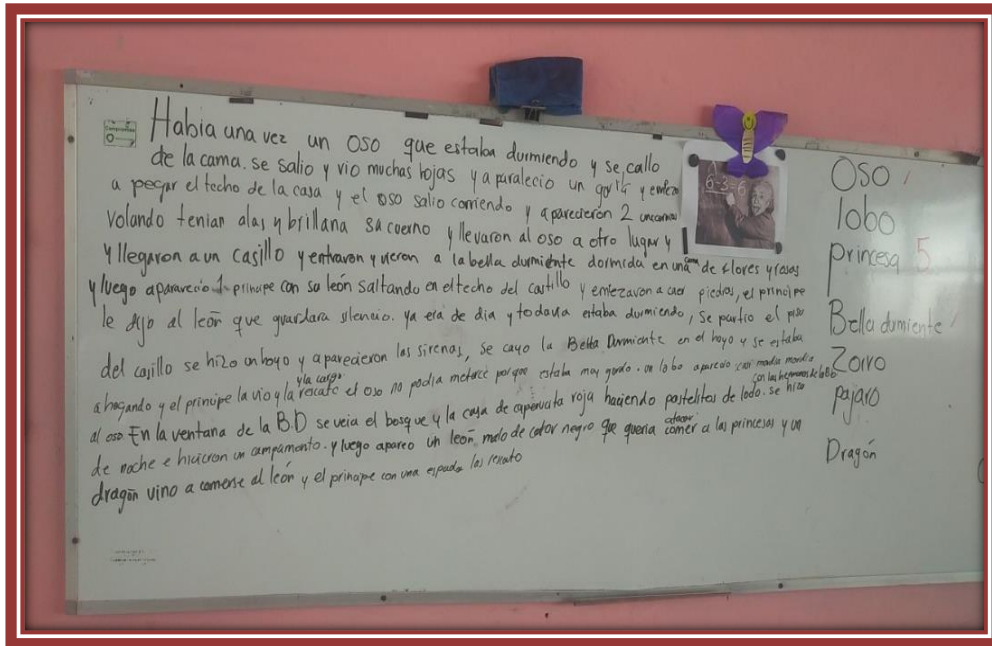 Habia una vez un oso que estaba durmiendo y se callo
de la cama. se salio y vio muchas hojas y aparalecio un y
a pegar el techo de la casa y el oso salio corriendo y aparecieron 2
volando tenian alas y brillana su cuerno y llevaron al oso a otro lugar y
y llegaron a un casillo y entraron y vieron a la bella durmiente dormida en una cama de flores y rosas
y luego aparavecio 1 principe con su león saltando en el techo del castillo y emiezavon a caer piedras, el principe
le dijo al león que guardara silencio. ya era de dia y todavia estaba durmiendo, Se partio el piso
del casillo se hizo un hoyo y aparecieron las sirenas, se cayo la Bella Durmiente en el hoyo y se estaba
ahogando y el principe la vio y la cargo y la rescato el oso no podia meterce porque estaba muy gordo. un lobo aparecio casi
al oso En la ventana de la B.D se veia el bosque y la casa de caperucita roja haciendo pastelitos de lodo. se hizo
de noche e hicieron un campamento. y luego apareo un león malo de color negro que queria atacar comer a las princesas y un
dragón vino a comerse al león y el principe con una espada las rescato
6-3=6
Oso
lobo
princesa 5
Bella durmiente
Zorro
pajaro
Dragón